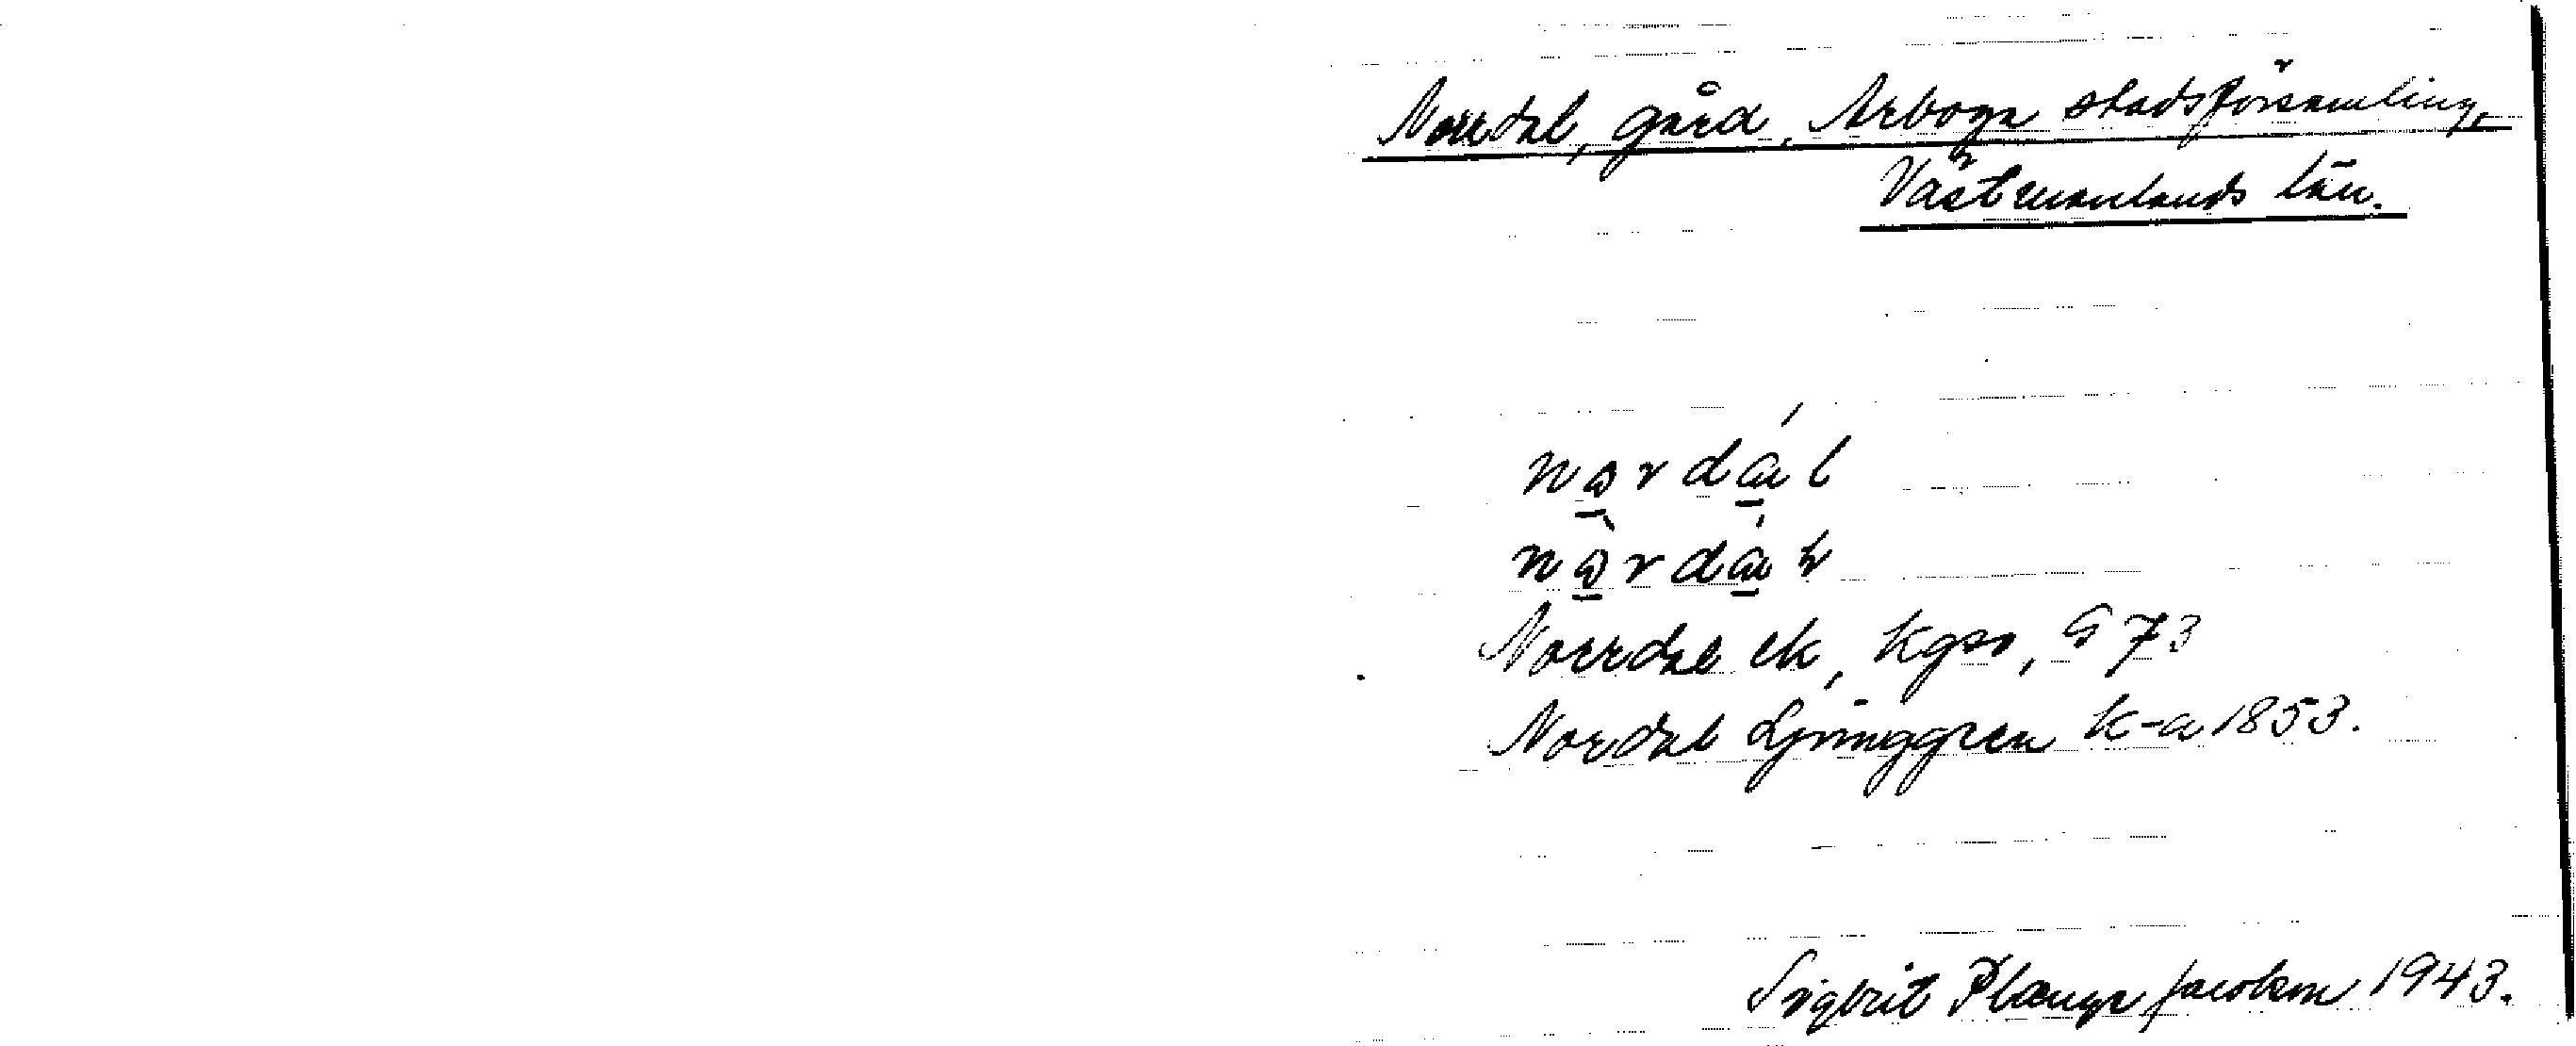 Norrdal, gård, Arboga stadsförsamling,
Västmanlands län.
nǫrda̱l
nǫ̀rdáɫ
Norrdal ek, Kgso, G 73
Nordal Ljunggren k-a 1853.
Sigbrit Plænge Jacobson 1943.